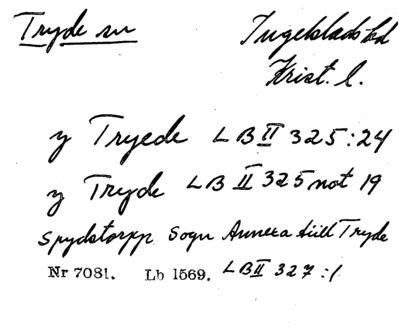 Tryde sn
Ingelstads hd
Krist. l.
y Tryede LB II 325:24
y Tryde LB II 325 not 19
Spydstorpp Sogn Annexa till Tryde
Nr 7081. Lb 1569. LB II 327:1